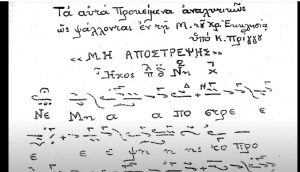 Τὰ αὐτὰ Προκείμενα ἀναλυτικῶς
ὡς ψάλλονται ἐν τῇ Μ. τοῦ Χρ. Ἐκκλησίᾳ
ὑπὸ Κ. Πρίγγου
«ΜΗ ΑΠΟΣΤΡΕΨΗΣ»
Ἦχος λ π δ Νη
ΝΕ Μη α α πο στρε ε
ε ε ψη η ης το προ